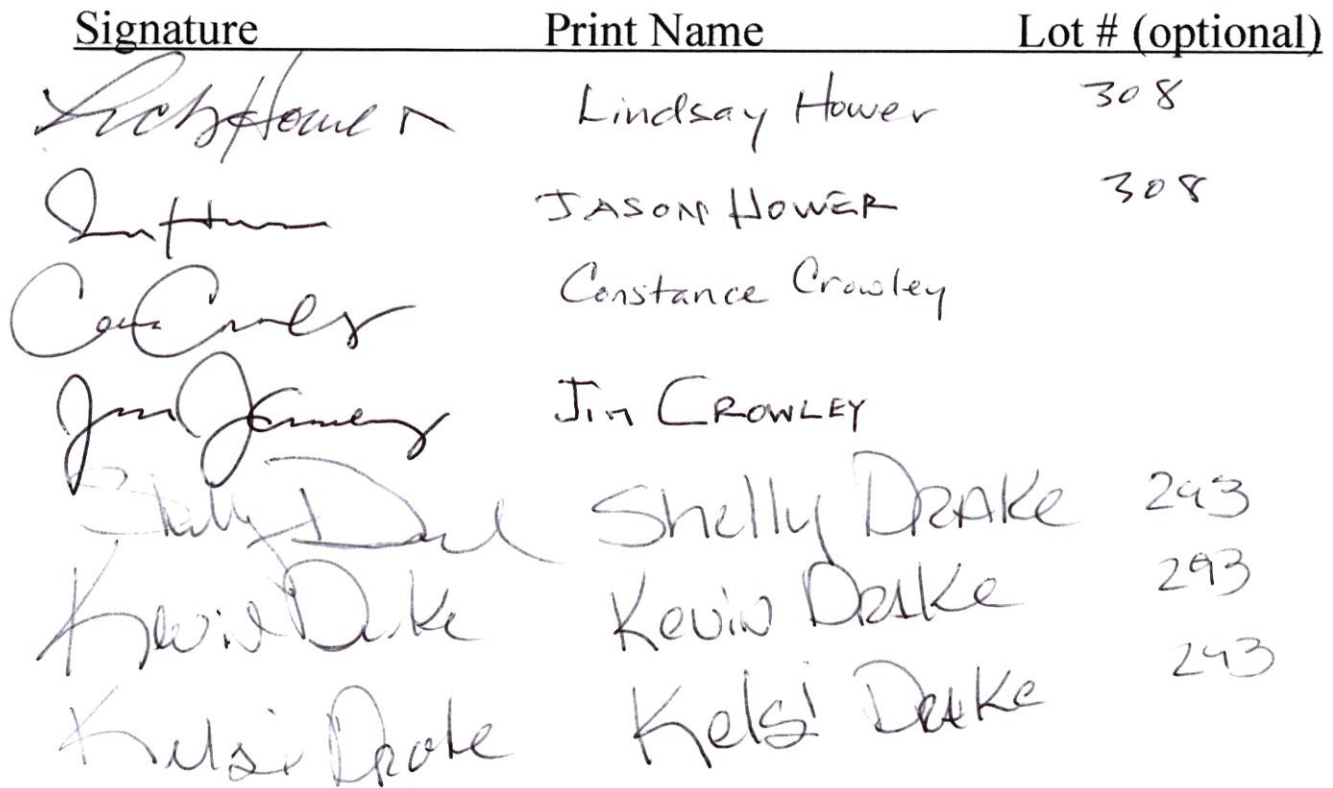 Signature Print Name Lot # (optional)
Lindsay Hower 308
JASON HOWER 308
Constance Crowley
Jim CROWLEY
Shelly Shelly DRAKe 293
Kevin Drake Kevin DRAKe 293
Kelsi Drake Kelsi DRAKe 293